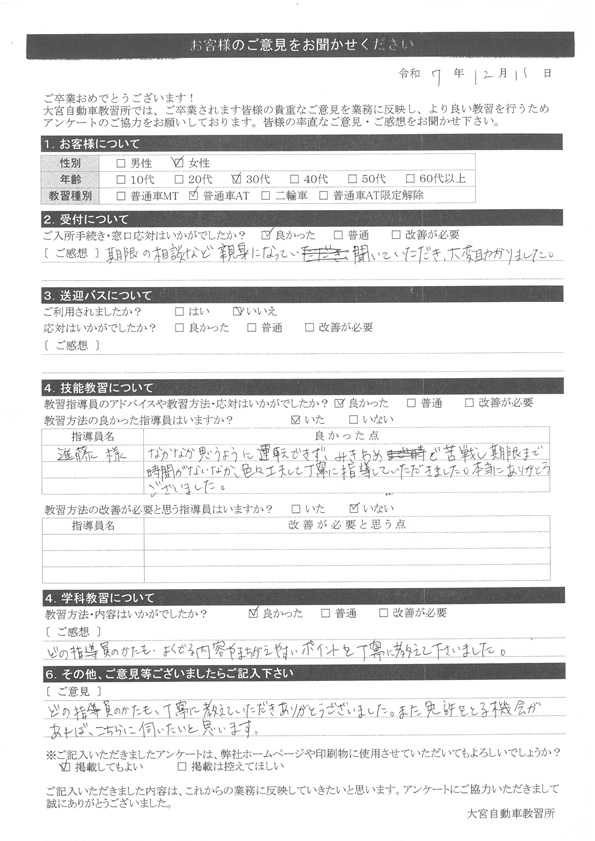 お客様のご意見をお聞かせください
令和 7 年 12 月 15 日
ご卒業おめでとうございます！
大宮自動車教習所では、ご卒業されます皆様の貴重なご意見を業務に反映し、より良い教習を行うため
アンケートのご協力をお願いしております。皆様の率直なご意見・ご感想をお聞かせ下さい。
1. お客様について
性別 □ 男性 ☑ 女性
年齢 □ 10代 □ 20代 ☑ 30代 □ 40代 □ 50代 □ 60代以上
教習種別 □ 普通車MT ☑ 普通車AT □ 二輪車 □ 普通車AT限定解除
2. 受付について
ご入所手続き・窓口応対はいかがでしたか？ ☑ 良かった □ 普通 □ 改善が必要
〔 ご感想 〕 期限の相談など親身になってい 聞いていただき、大変助かりました。
3. 送迎バスについて
ご利用されましたか？ □ はい ☑ いいえ
応対はいかがでしたか？ □ 良かった □ 普通 □ 改善が必要
〔 ご感想 〕
4. 技能教習について
教習指導員のアドバイスや教習方法・応対はいかがでしたか？ ☑ 良かった □ 普通 □ 改善が必要
教習方法の良かった指導員はいますか？ ☑ いた □ いない
指導員名 良かった点
進藤 様 なかなか思うように運転できず、みきわめ で苦戦し期限まで
時間がないなか、色々工夫して丁寧に指導していただきました。本当にありがとう
ございました。
教習方法の改善が必要と思う指導員はいますか？ □ いた ☑ いない
指導員名 改善が必要と思う点
4. 学科教習について
教習方法・内容はいかがでしたか？ ☑ 良かった □ 普通 □ 改善が必要
〔 ご感想 〕
どの指導員のかたも、よくでる内容やまちがえやすいポイントを丁寧に教えて下さいました。
6. その他、ご意見等ございましたらご記入下さい
〔 ご意見 〕
どの指導員のかたも、丁寧に教えていただきありがとうございました。また免許をとる機会が
あれば、こちらに伺いたいと思います。
※ご記入いただきましたアンケートは、弊社ホームページや印刷物に使用させていただいてもよろしいでしょうか？
☑ 掲載してもよい □ 掲載は控えてほしい
ご記入いただきました内容は、これからの業務に反映していきたいと思います。アンケートにご協力いただきまして
誠にありがとうございました。
大宮自動車教習所